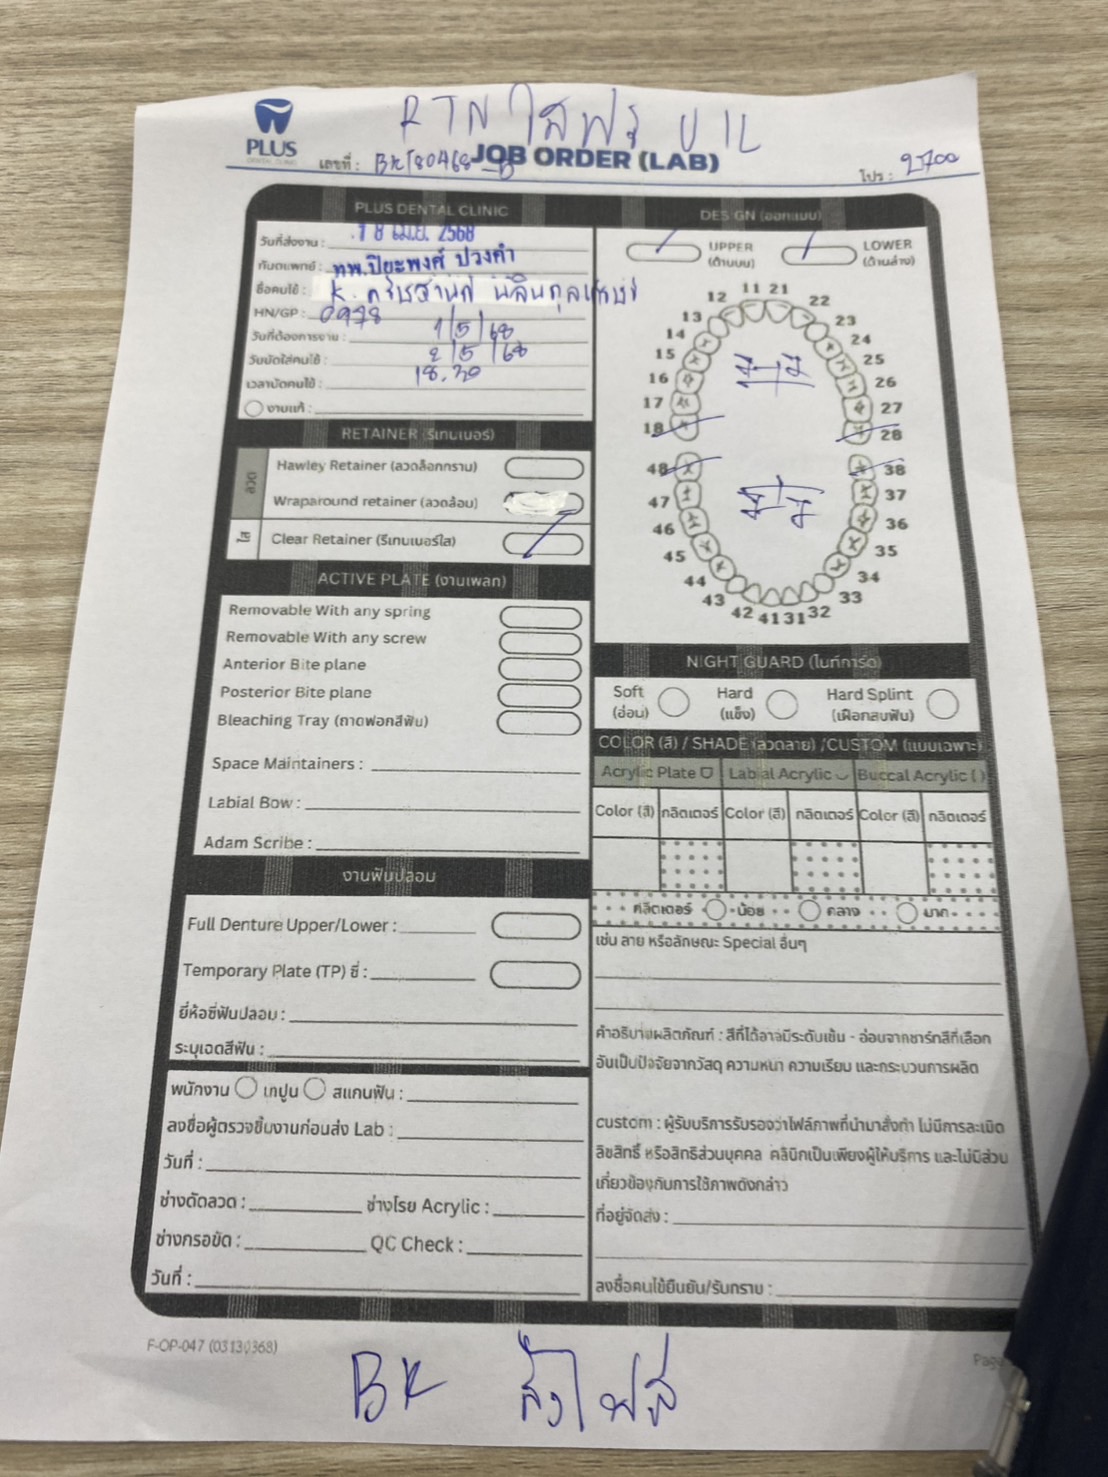 RTN ใสฟรี U/L
PLUS
DENTAL CLINIC
เลขที่ : BKT80468_B
JOB ORDER (LAB)
โปร : 2700
PLUS DENTAL CLINIC
วันที่ส่งงาน : 18 เม.ย. 2568
ทันตแพทย์ : ทพ.ปิยะพงศ์ ปวงคำ
ชื่อคนไข้ : K.
HN/GP : 0978
วันที่ต้องการงาน : 1/5/68
วันนัดใส่คนไข้ : 2/5/68
เวลานัดคนไข้ : 18.30
งานแก้ :
RETAINER (รีเทนเนอร์)
ลวด
Hawley Retainer (ลวดล็อกกราม)
Wraparound retainer (ลวดล้อม)
ใส
Clear Retainer (รีเทนเนอร์ใส)
ACTIVE PLATE (งานเพลท)
Removable With any spring
Removable With any screw
Anterior Bite plane
Posterior Bite plane
Bleaching Tray (ถาดฟอกสีฟัน)
Space Maintainers :
Labial Bow :
Adam Scribe :
งานฟันปลอม
Full Denture Upper/Lower :
Temporary Plate (TP) ซี่ :
ยี่ห้อซี่ฟันปลอม :
ระบุเฉดสีฟัน :
พนักงาน เทปูน สแกนฟัน :
ลงชื่อผู้ตรวจชิ้นงานก่อนส่ง Lab :
วันที่ :
ช่างดัดลวด : ช่างโรย Acrylic :
ช่างกรอขัด : QC Check :
วันที่ :
DESIGN (ออกแบบ)
UPPER (ด้านบน)
LOWER (ด้านล่าง)
11 21
12 22
13 23
14 24
15 25
16 26
17 27
18 28
48 38
47 37
46 36
45 35
44 34
43 33
42 41 31 32
NIGHT GUARD (ไนท์การ์ด)
Soft (อ่อน)
Hard (แข็ง)
Hard Splint (เฝือกสบฟัน)
COLOR (สี) / SHADE (ลวดลาย) /CUSTOM (แบบเฉพาะ)
Acrylic Plate Labial Acrylic Buccal Acrylic ( )
Color (สี) กลิตเตอร์ Color (สี) กลิตเตอร์ Color (สี) กลิตเตอร์
กลิตเตอร์ น้อย กลาง มาก
เช่น ลาย หรือลักษณะ Special อื่นๆ
คำอธิบายผลิตภัณฑ์ : สีที่ได้อาจมีระดับเข้ม - อ่อนจากชาร์ทสีที่เลือก
อันเป็นปัจจัยจากวัสดุ ความหนา ความเรียบ และกระบวนการผลิต
custom : ผู้รับบริการรับรองว่าไฟล์ภาพที่นำมาสั่งทำ ไม่มีการละเมิด
ลิขสิทธิ์ หรือสิทธิส่วนบุคคล คลินิกเป็นเพียงผู้ให้บริการ และไม่มีส่วน
เกี่ยวข้องกับการใช้ภาพดังกล่าว
ที่อยู่จัดส่ง :
ลงชื่อคนไข้ยืนยัน/รับทราบ :
F-OP-047 (03130368)
BK ส่งไฟล์